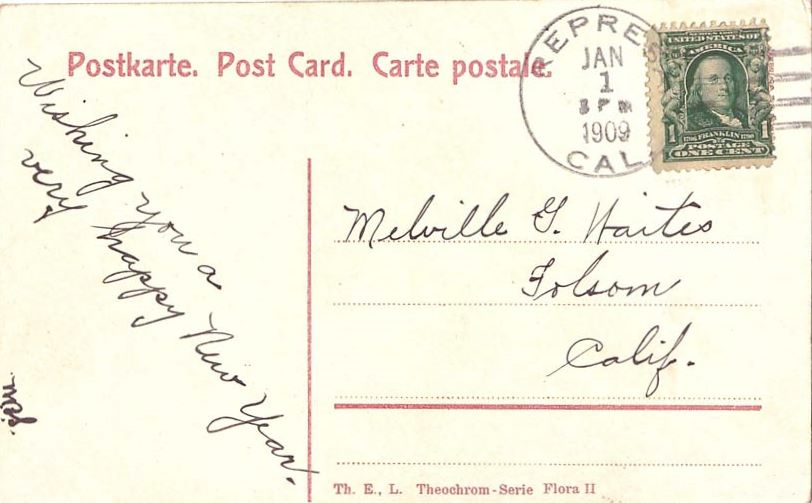 Postkarte. Post Card. Carte postale.
REPRES
JAN
1
3 PM
1909
CAL.
SERIES 1902
UNITED STATES OF
AMERICA
1706 FRANKLIN 1790
1 POSTAGE 1
ONE CENT
Wishing you a
very happy New Year.
Melville G. Waites
Folsom
Calif.
Th. E., L. Theochrom-Serie Flora II